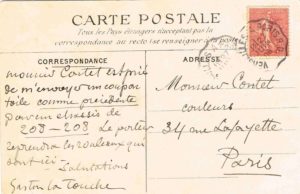 CARTE POSTALE
Tous les Pays étrangers n'acceptent pas la
correspondance au recto (se renseigner
CORRESPONDANCE
ADRESSE
Monsieur Contet est prié
de m'envoyer un coupon
toile comme précédente
pour un chassis de
208-208 Le porteur
reprendra les rouleaux qui
sont ici Salutations
Gaston La Touche
Monsieur Contet
couleurs
34 rue Lafayette
Paris